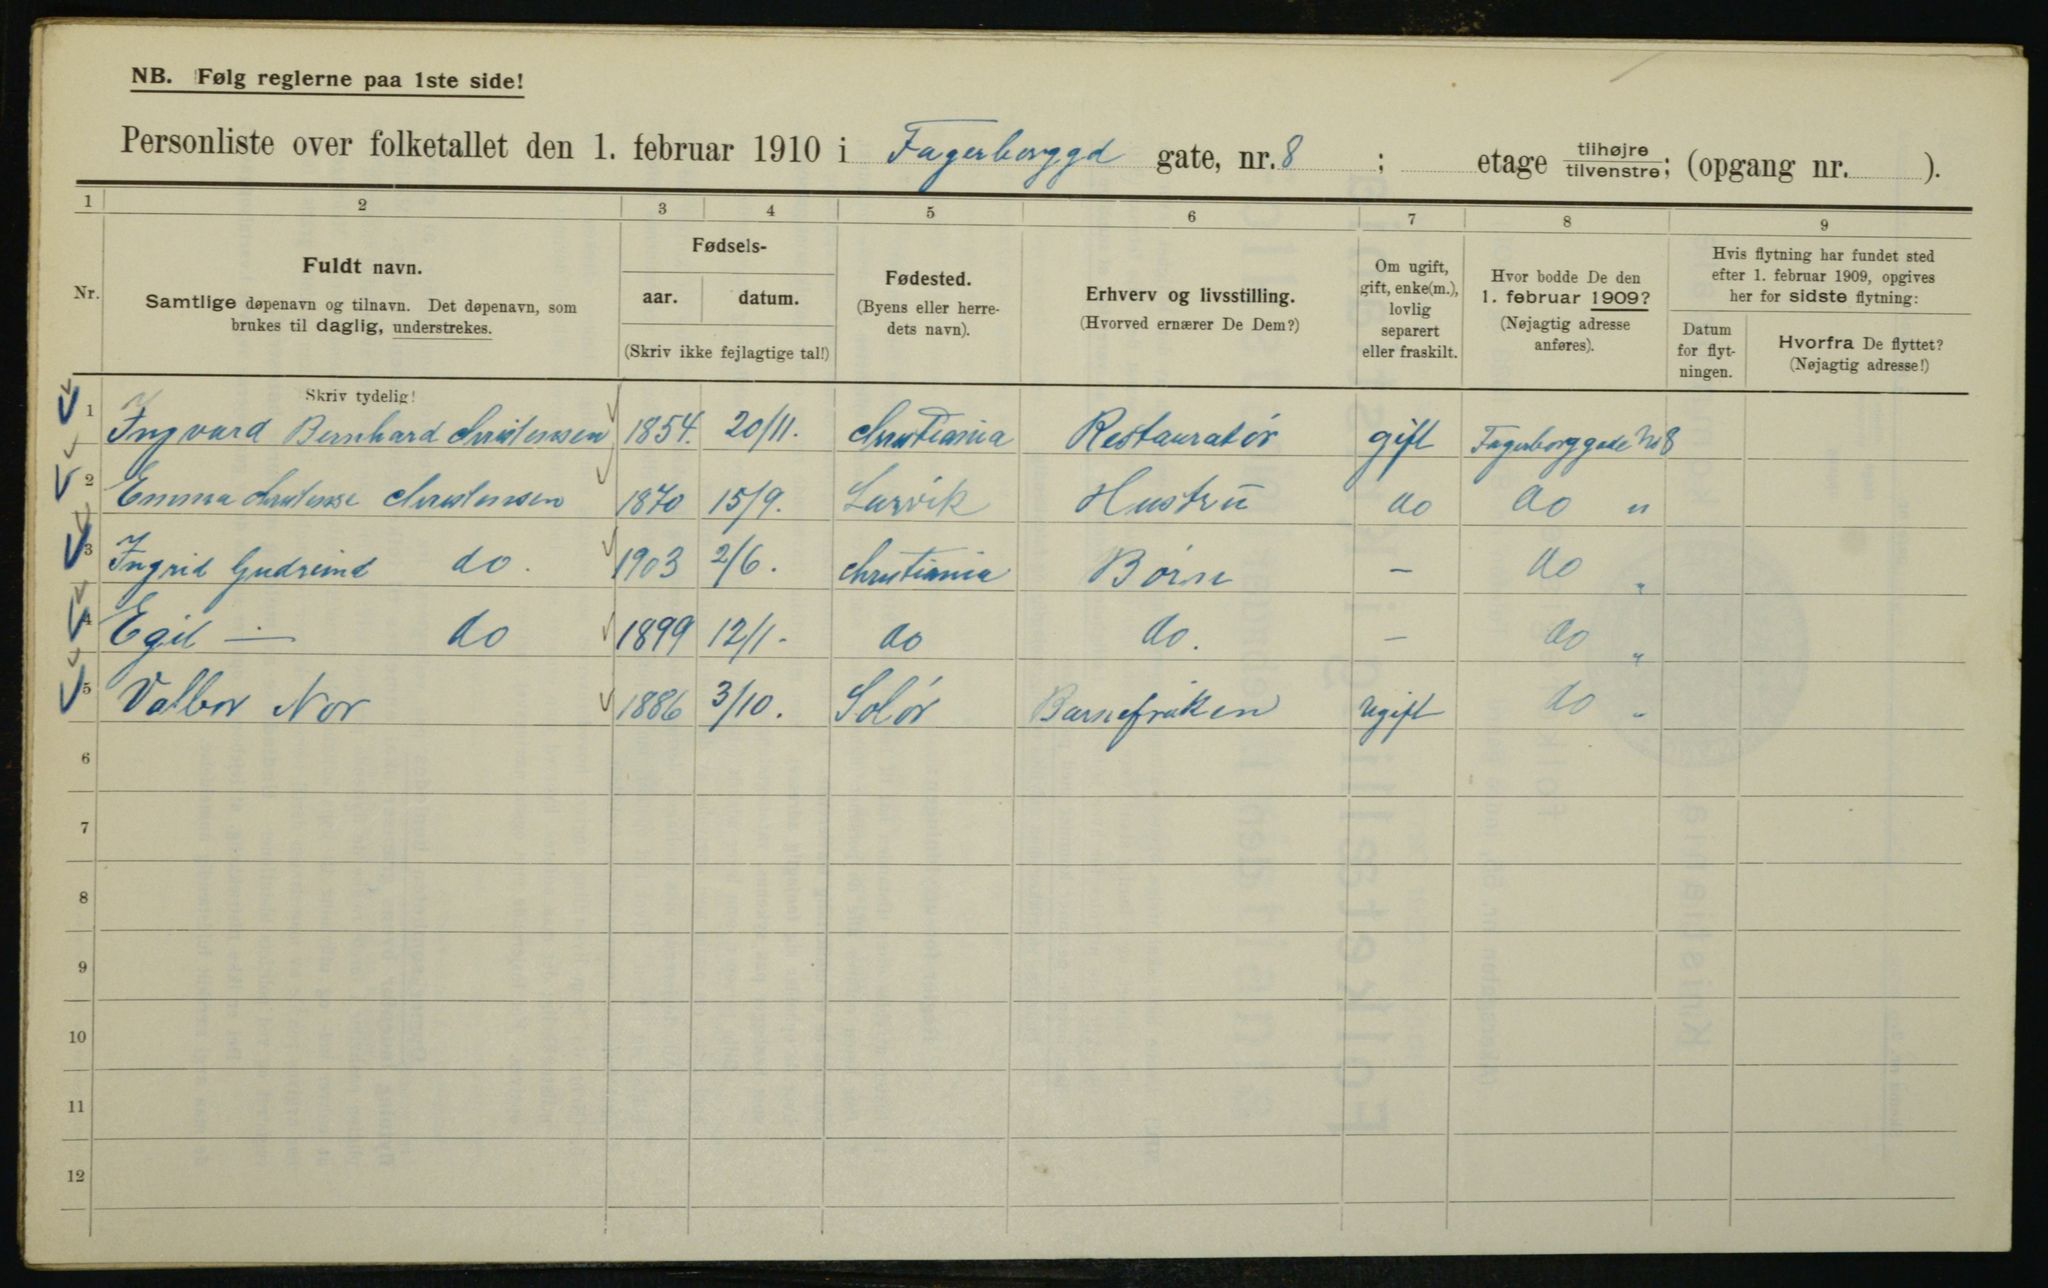 NB. Følg reglerne paa 1ste side!
Personliste over folketallet den 1. februar 1910 i Fagerborggd gate, nr. 8 ; etage tilhøjre/tilvenstre; (opgang nr. ).
1 2 3 4 5 6 7 8 9
Nr.
Fuldt navn.
Samtlige døpenavn og tilnavn. Det døpenavn, som
brukes til daglig, understrekes.
Fødsels-
aar. datum.
(Skriv ikke fejlagtige tal!)
Fødested.
(Byens eller herre-
dets navn).
Erhverv og livsstilling.
(Hvorved ernærer De Dem?)
Om ugift,
gift, enke(m.),
lovlig
separert
eller fraskilt.
Hvor bodde De den
1. februar 1909?
(Nøjagtig adresse
anføres).
Hvis flytning har fundet sted
efter 1. februar 1909, opgives
her for sidste flytning:
Datum
for flyt-
ningen.
Hvorfra De flyttet?
(Nøjagtig adresse!)
Skriv tydelig!
1 Ingvard Bernhard Christensen 1854. 20/11. Christiania Restauratør gift Fagerborggade No 8
2 Emma Christensen 1870 15/9. Larvik Hustru do do "
3 Ingrid Gudrund do. 1903 2/6. Christiania Børn - do "
4 Egil — do 1899 12/1. do do. - do "
5 Valbor Nor 1886 3/10. Solør Barnefrøken Ugift do "
6
7
8
9
10
11
12